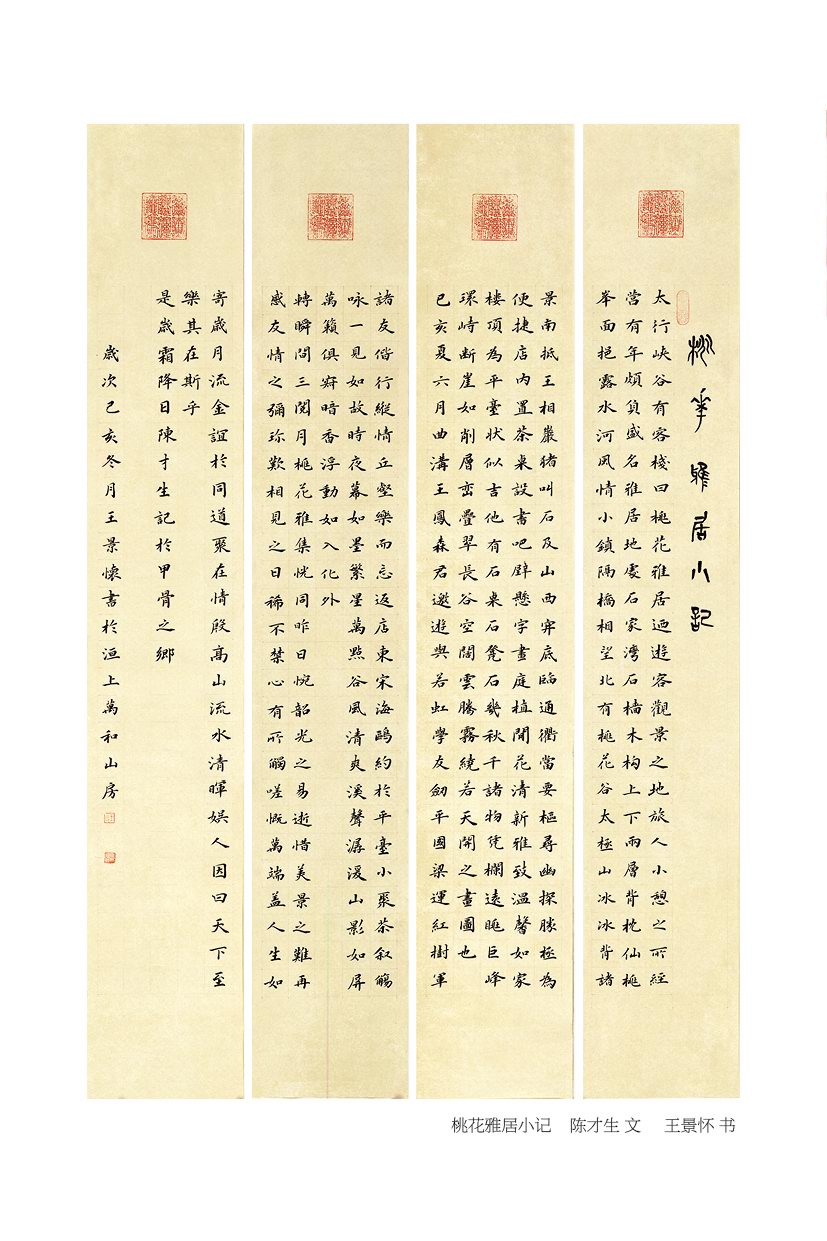 桃花雅居小記
太行峽谷有客棧曰桃花雅居迺遊客觀景之地旅人小憩之所經
營有年頗負盛名雅居地處石家灣石墻木构上下兩層背枕仙桃
峯面挹露水河風情小鎮隔橋相望北有桃花谷太極山冰冰背諸
景南抵王相巖猪叫石及山西穽底臨通衢當要樞尋幽探勝極為
便捷店内置茶桌設書吧壁懸字畫庭植閒花清新雅致溫馨如家
楼頂為平臺狀似吉他有石桌石凳石幾秋千諸物凭欄遠眺巨峰
環峙断崖如削層峦疊翠長谷空闊雲騰霧繞若天開之畫圖也
己亥夏六月曲溝王鳳森君邀遊與若虹學友劒平國梁運紅樹軍
諸友偕行縱情丘壑樂而忘返店東宋海鷗約於平臺小聚茶叙觴
咏一見如故時夜幕如墨繁星萬點谷風清爽溪聲潺湲山影如屏
萬籟俱寂暗香浮動如入化外
轉瞬間三閱月桃花雅集恍同昨日惋韶光之易逝惜美景之難再
感友情之彌珎歎相見之日稀不禁心有所觸嗟慨萬端盖人生如
寄歲月流金誼於同道聚在情殷高山流水清暉娱人因曰天下至
樂其在斯乎
是歲霜降日陳才生記於甲骨之鄉
歲次己亥冬月王景懷書於洹上萬和山房
桃花雅居小记 陈才生 文 王景怀 书